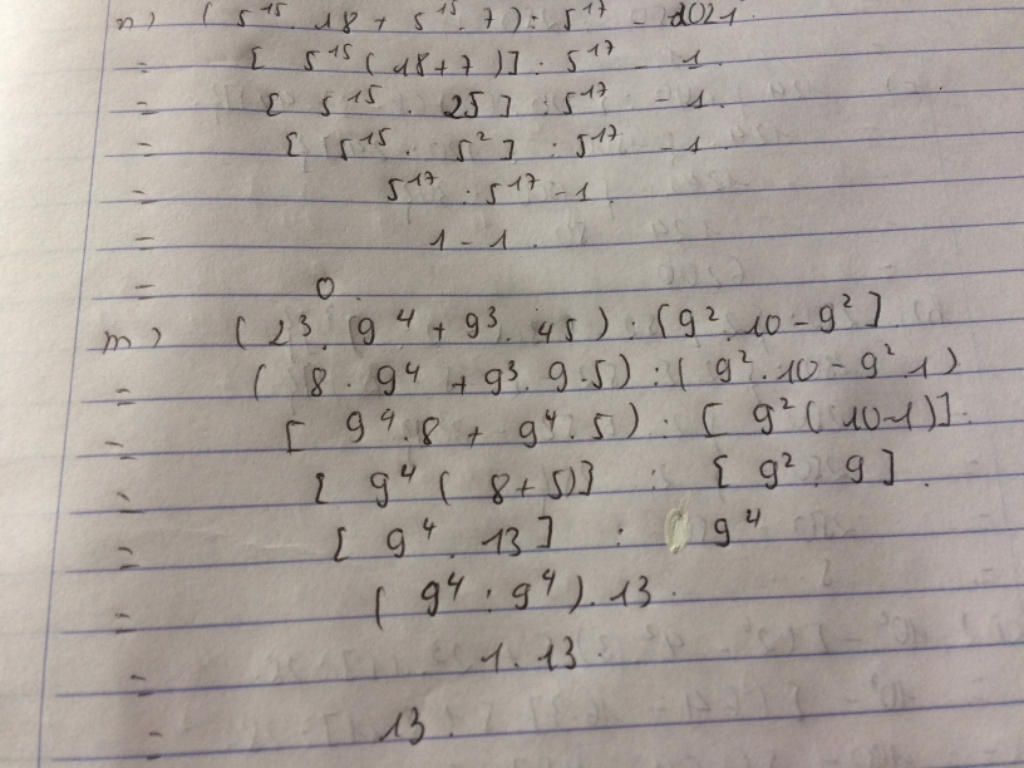 n) (5¹⁵. 18 + 5¹⁵. 7) : 5¹⁷ - 2021⁰.
= [ 5¹⁵ ( 18+7 )] : 5¹⁷ - 1.
= [ 5¹⁵ . 25 ] : 5¹⁷ - 1.
= [ 5¹⁵ . 5² ] : 5¹⁷ - 1.
= 5¹⁷ : 5¹⁷ - 1.
= 1 - 1.
= 0.
m) (2³. 9⁴ + 9³. 45) : [9². 10 - 9²]
= ( 8 . 9⁴ + 9³. 9.5) : ( 9². 10 - 9² 1)
= [ 9⁴.8 + 9⁴.5) : [ 9² ( 10-1)].
= [ 9⁴ ( 8+5)] : [ 9² . 9 ].
= [ 9⁴ . 13 ] : 9⁴
= ( 9⁴ : 9⁴ ) . 13.
= 1 . 13.
= 13.